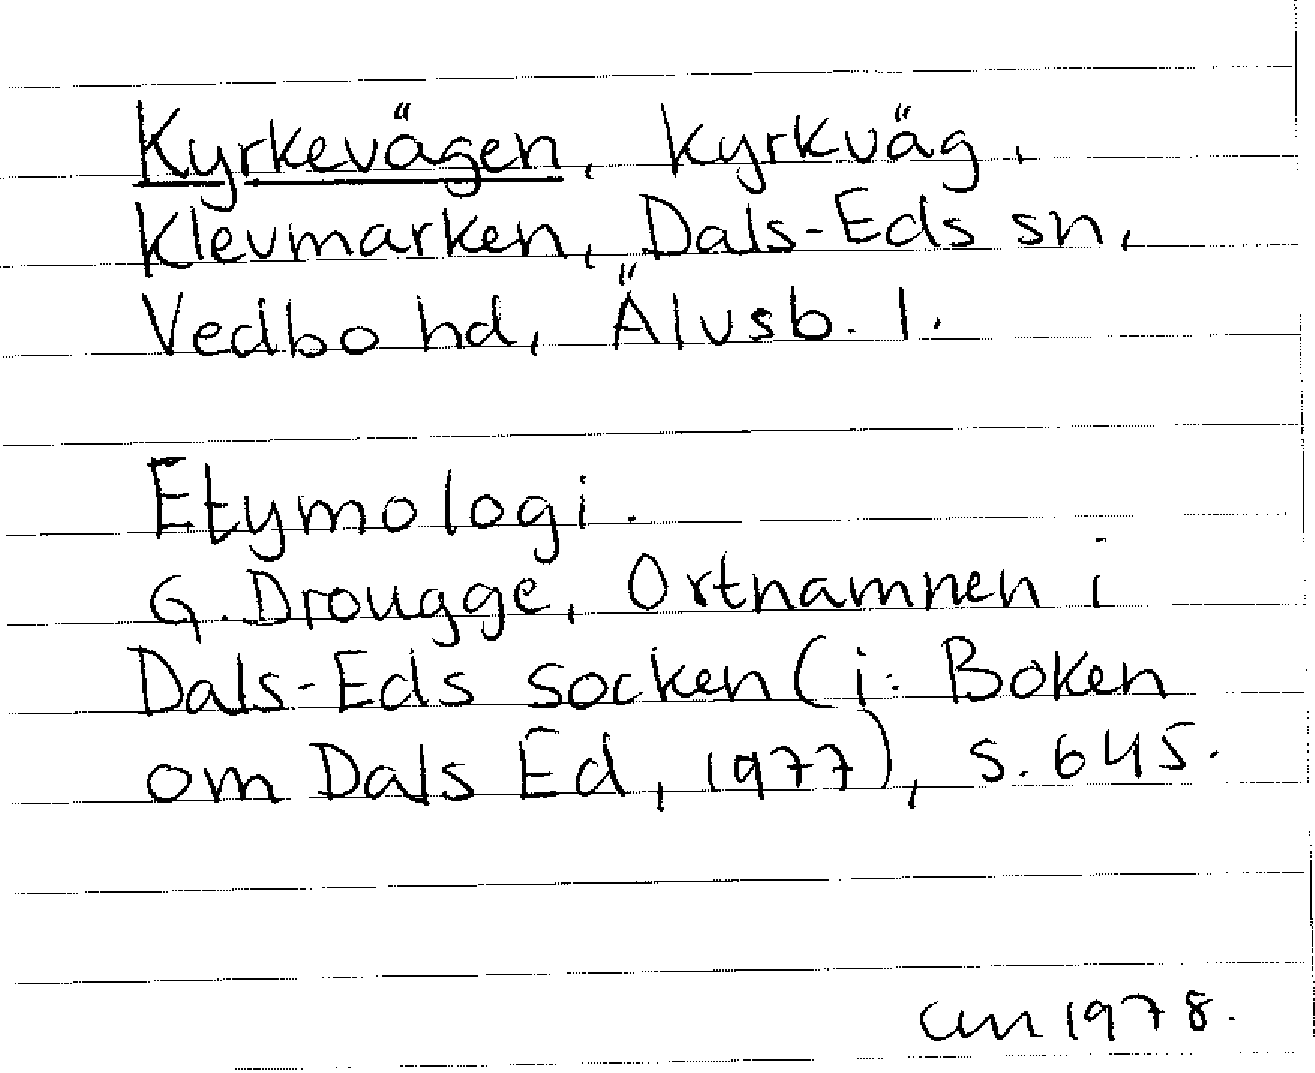 Kyrkevägen, kyrkväg,
Klevmarken, Dals-Eds sn,
Vedbo hd, Älvsb. l.
Etymologi.
G. Drougge, Ortnamnen i
Dals-Eds socken (i: Boken
om Dals Ed, 1977), s. 645.
1978.